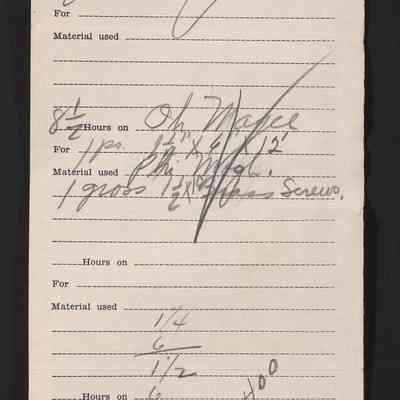 For
Material used
8 1/2 Hours on Oh Magee
For 1 ps. 1 1/2" X 9" X 12'
Material used Phi. Mogh.
1 gross 1 1/2 X Brass Screws.
Hours on
For
Material used
1/4
6
1 1/2
Hours on 6